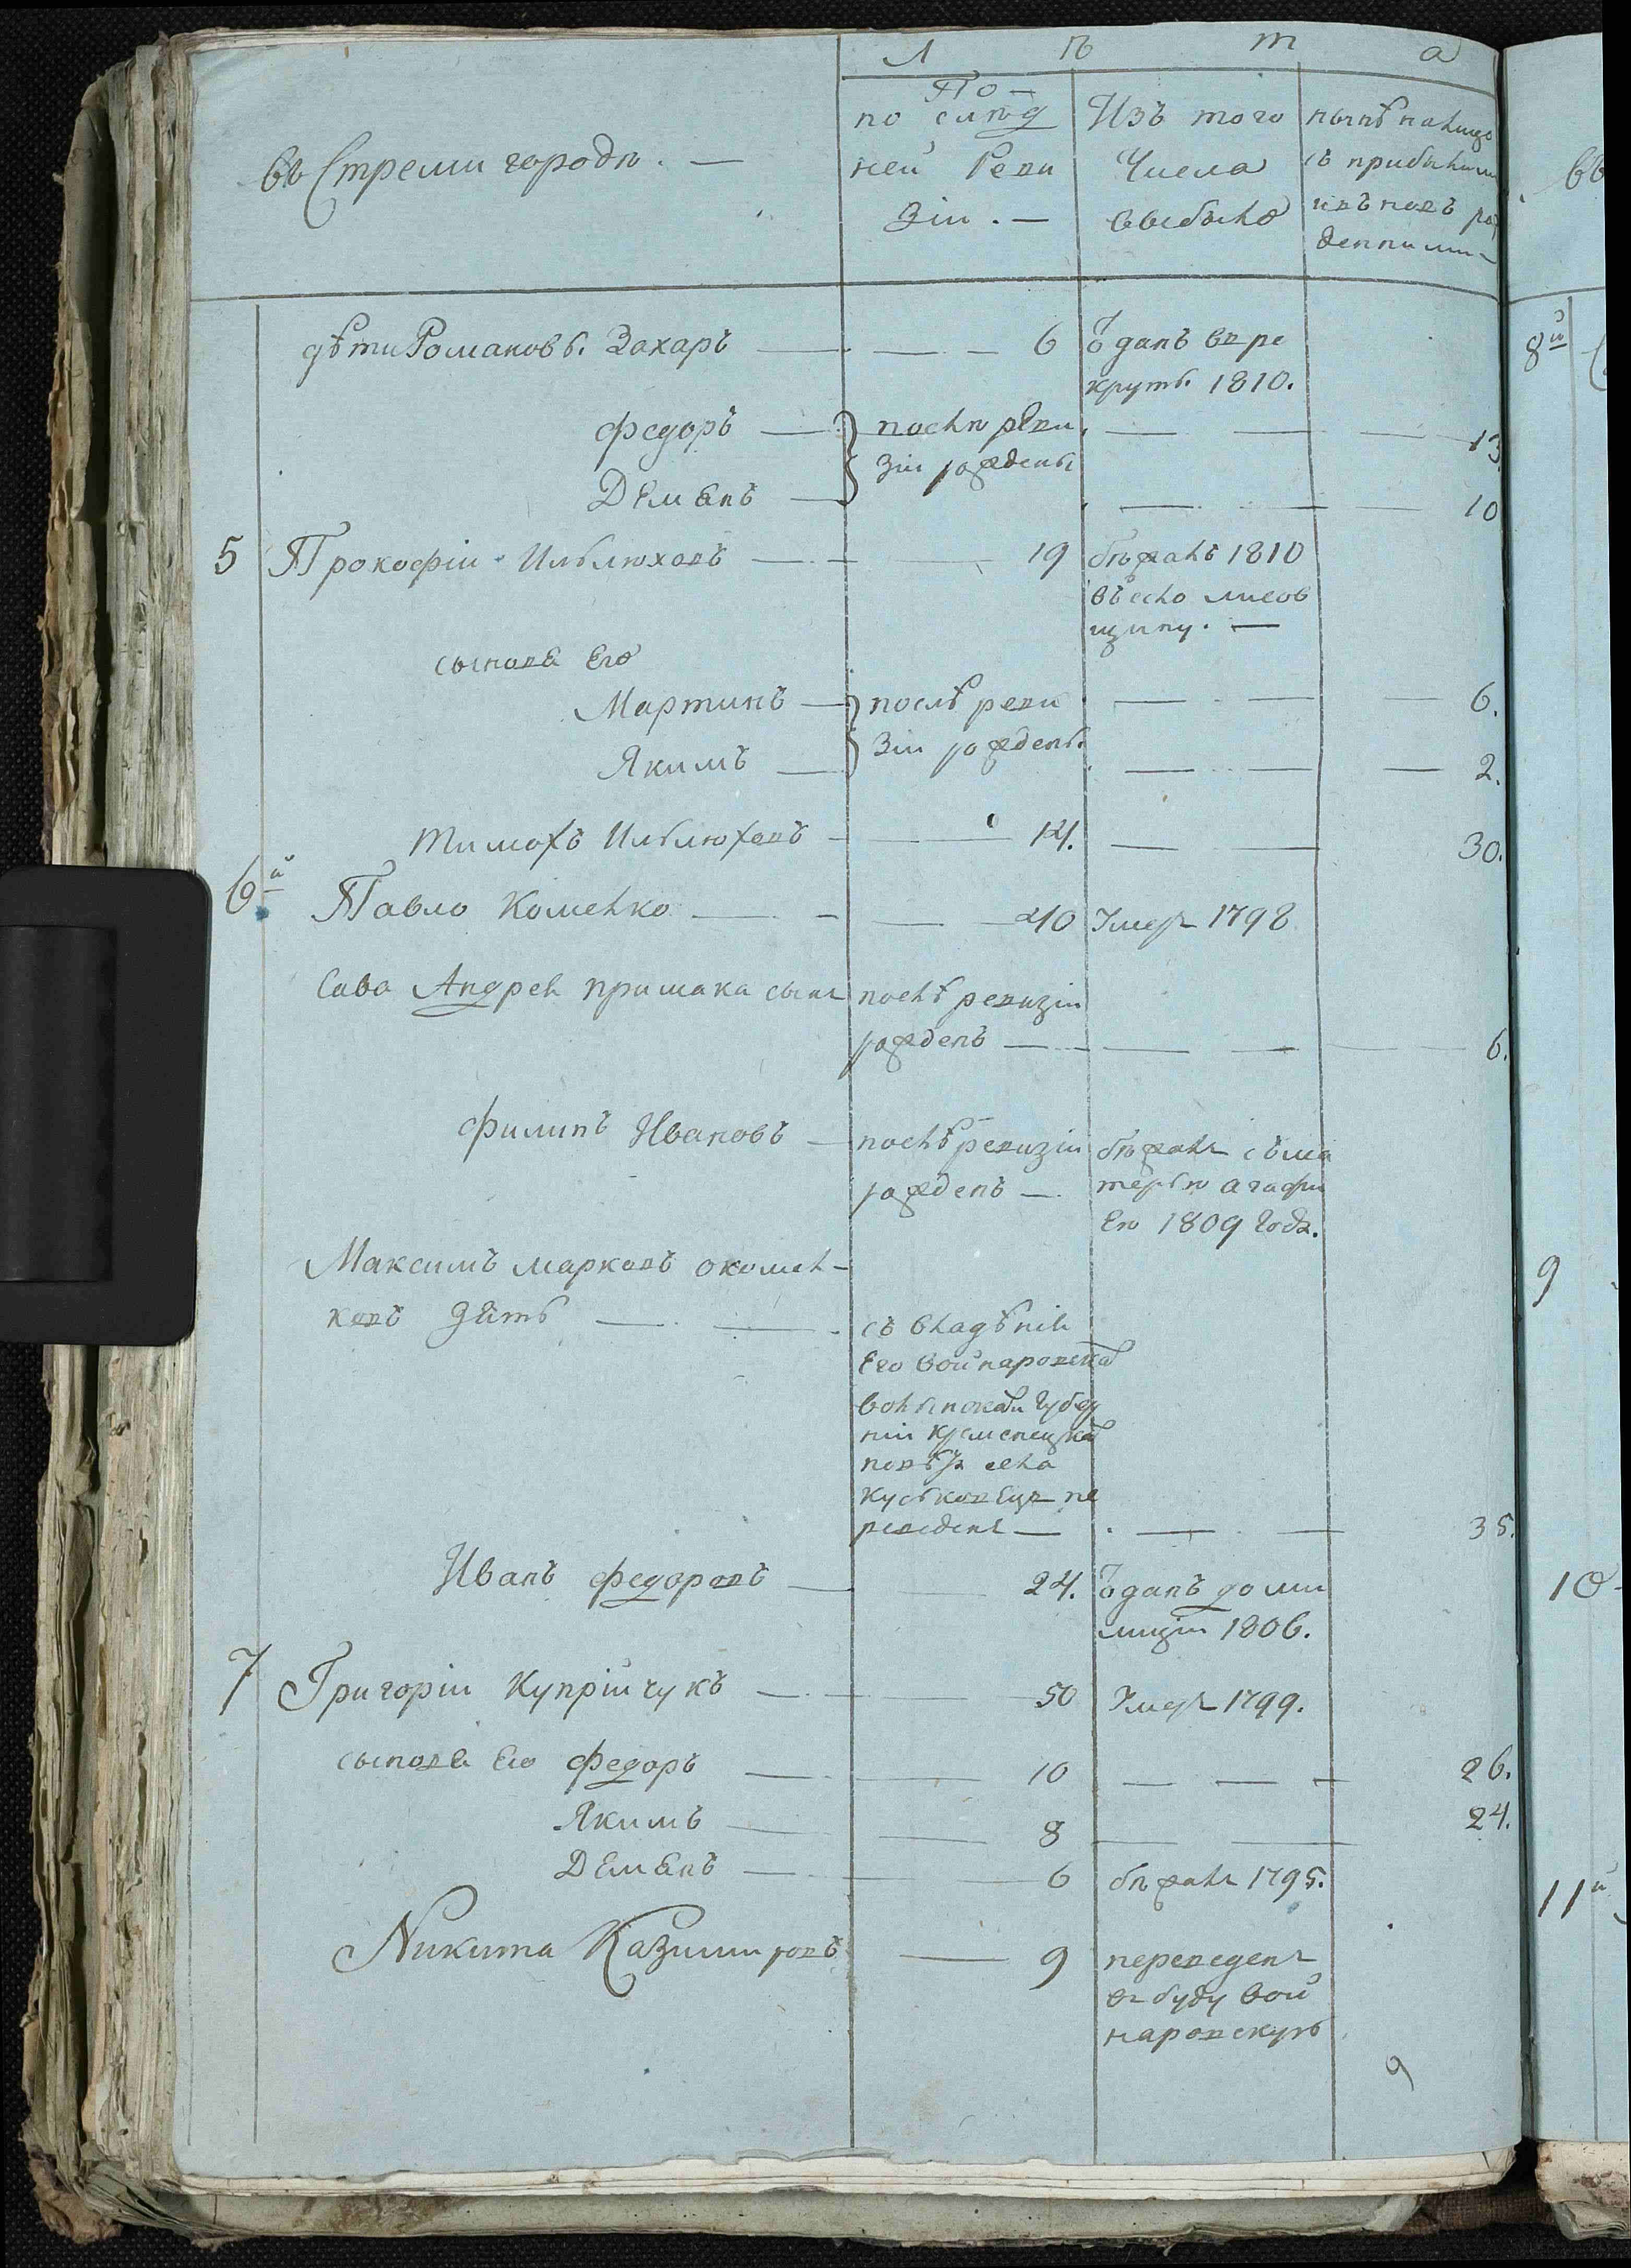 Л ѣ т а
въ Стремигородѣ. —
По —
по слѣд
ней Реви
зіи. —
Изъ того
Числа
выбыло
нынѣ налицо
съ прибылими
денними —
дѣти Романовы. Захаръ — — — 6 ѿданъ вре
круты. 1810.
федоръ — послѣ реви — — — 13.
зіи рождены
Деменъ — — — — 10
5 Прокофіи Ильлюховъ — — 19 бѣжалъ 1810
въ село лисов
щину. —
сынове Его
Мартинъ — послѣ реви — — — 6.
зіи рождены.
Якимъ — — — — 2.
тимохъ Ильлюховъ — — 14. — — 30.
6й Павло Комелко — — — 40 Умеръ 1798
Сава Андреи примака сынъ послѣ ревизіи
рожденъ — — — — 6.
филипъ Ивановъ — послѣ ревизіи бѣжалъ съ ма
рожденъ — терью агафи
Ею 1809 года.
Максимъ марковъ окомел-
ковъ зять — — съ владѣнія
Его войнаровска
волынской губер
ніи кременецка
повѣта села
куськовецъ пе
реведенъ — — — 35.
Иванъ федоровъ — — 24. ѿданъ до ми
лиціи 1806.
7 Григоріи Купріичукъ — — 50 Умеръ 1799.
сынове Его федоръ — — 10 — — — 26.
Якимъ — — 8 — — 24.
Деменъ — — 6 бѣжалъ 1795.
Никита Казимировъ — 9 переведенъ
въ буду вой
наровскую
9
вв
8й
9
10
11й